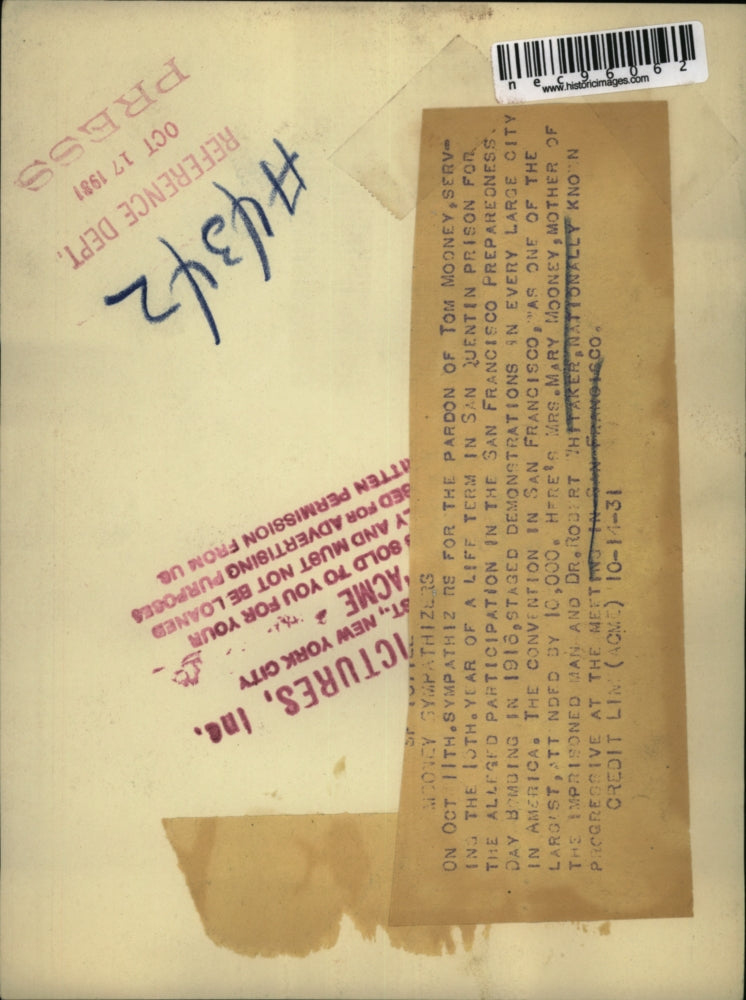 nec96062
www.historicimages.com
PRESS
OCT 17 1931
REFERENCE DEPT.
A4342
MOONEY SYMPATHIZERS
ON OCT 11TH. SYMPATHIZ RS FOR THE PARDON OF TOM MOONEY, SERV-
ING THE 15TH. YEAR OF A LIFE TERM IN SAN QUENTIN PRISON FOR
THE ALLEGED PARTICIPATION IN THE SAN FRANCISCO PREPAREDNESS
DAY BOMBING IN 1916, STAGED DEMONSTRATIONS IN EVERY LARGE CITY
IN AMERICA. THE CONVENTION IN SAN FRANCISCO, WAS ONE OF THE
LARGEST, ATT NDED BY 10,000. HERE'S MRS. MARY MOONEY, MOTHER OF
THE IMPRISONED MAN AND DR. ROBERT WHITTAKER, NATIONALLY KNOWN
PROGRESSIVE AT THE MEETING IN SAN FRANCISCO.
CREDIT LINE (ACME) 10-14-31
ICTURES, Inc.
ST., NEW YORK CITY
ACME
SOLD TO YOU FOR YOUR
LY AND MUST NOT BE LOANED
SED FOR ADVERTISING PURPOSES
ITTEN PERMISSION FROM US